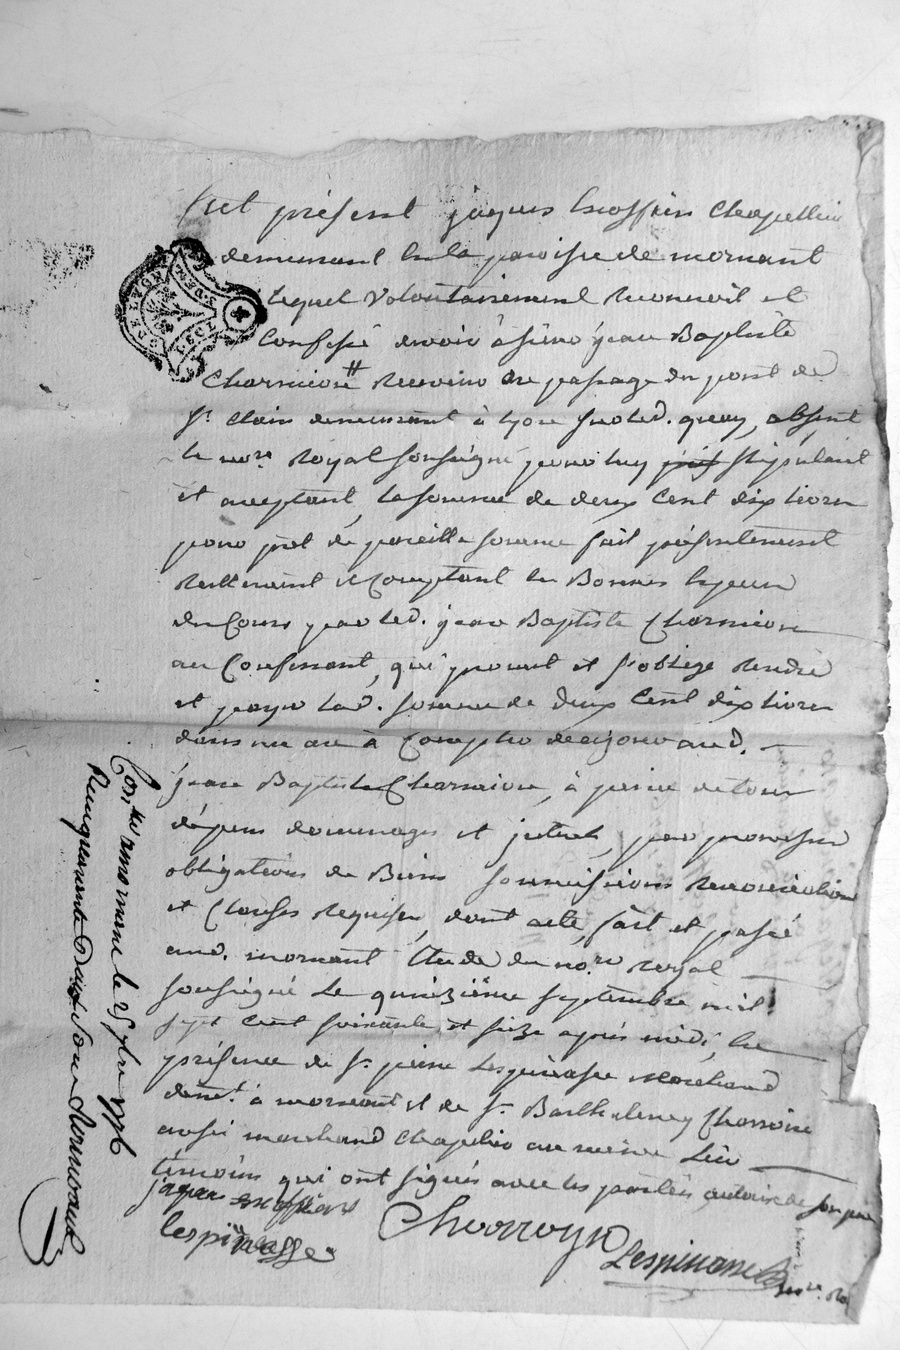 Est présent jaques Escoffier Chapellier
demeurant en la paroisse de mornant
Lequel volontairement reconnoit et
Confesse devoir à sieur jean Baptiste
receveur au passage du pont de
St. Clair demeurant à Lyon sur led. quay, absent
le nore. Royal soussigné pour luy stipulant
et acceptant, la somme de deux Cent dix livres
pour prêt de pareille somme fait présentement
Reellement et Comptant en Bonnes especes
de Cours par led. jean Baptiste
au Confessant, qui promet et s'oblige rendre
et payer lad. somme de deux Cent dix livres
dans un an à Compter de ce jour aud.
jean Baptiste à peine de tous
dépens dommages et interets, par promesse
obligations de Biens soumissions renonciations
et Clauses Requises, dont acte, fait et passé
aud. mornant Etude du nore. royal
soussigné Le quinzième septembre mil
sept cent soixante et seize après midi, en
présence de Sr. pierre Lespinasse marchand
demt. à mornant et de Sr. Barthelemy
aussi marchand Chapelier au même Lieu
témoins qui ont signés avec les parties
jaques escoffier
lespinasse
Lespinasse
Conlé. a mornant le 25 7bre 1776
LYON